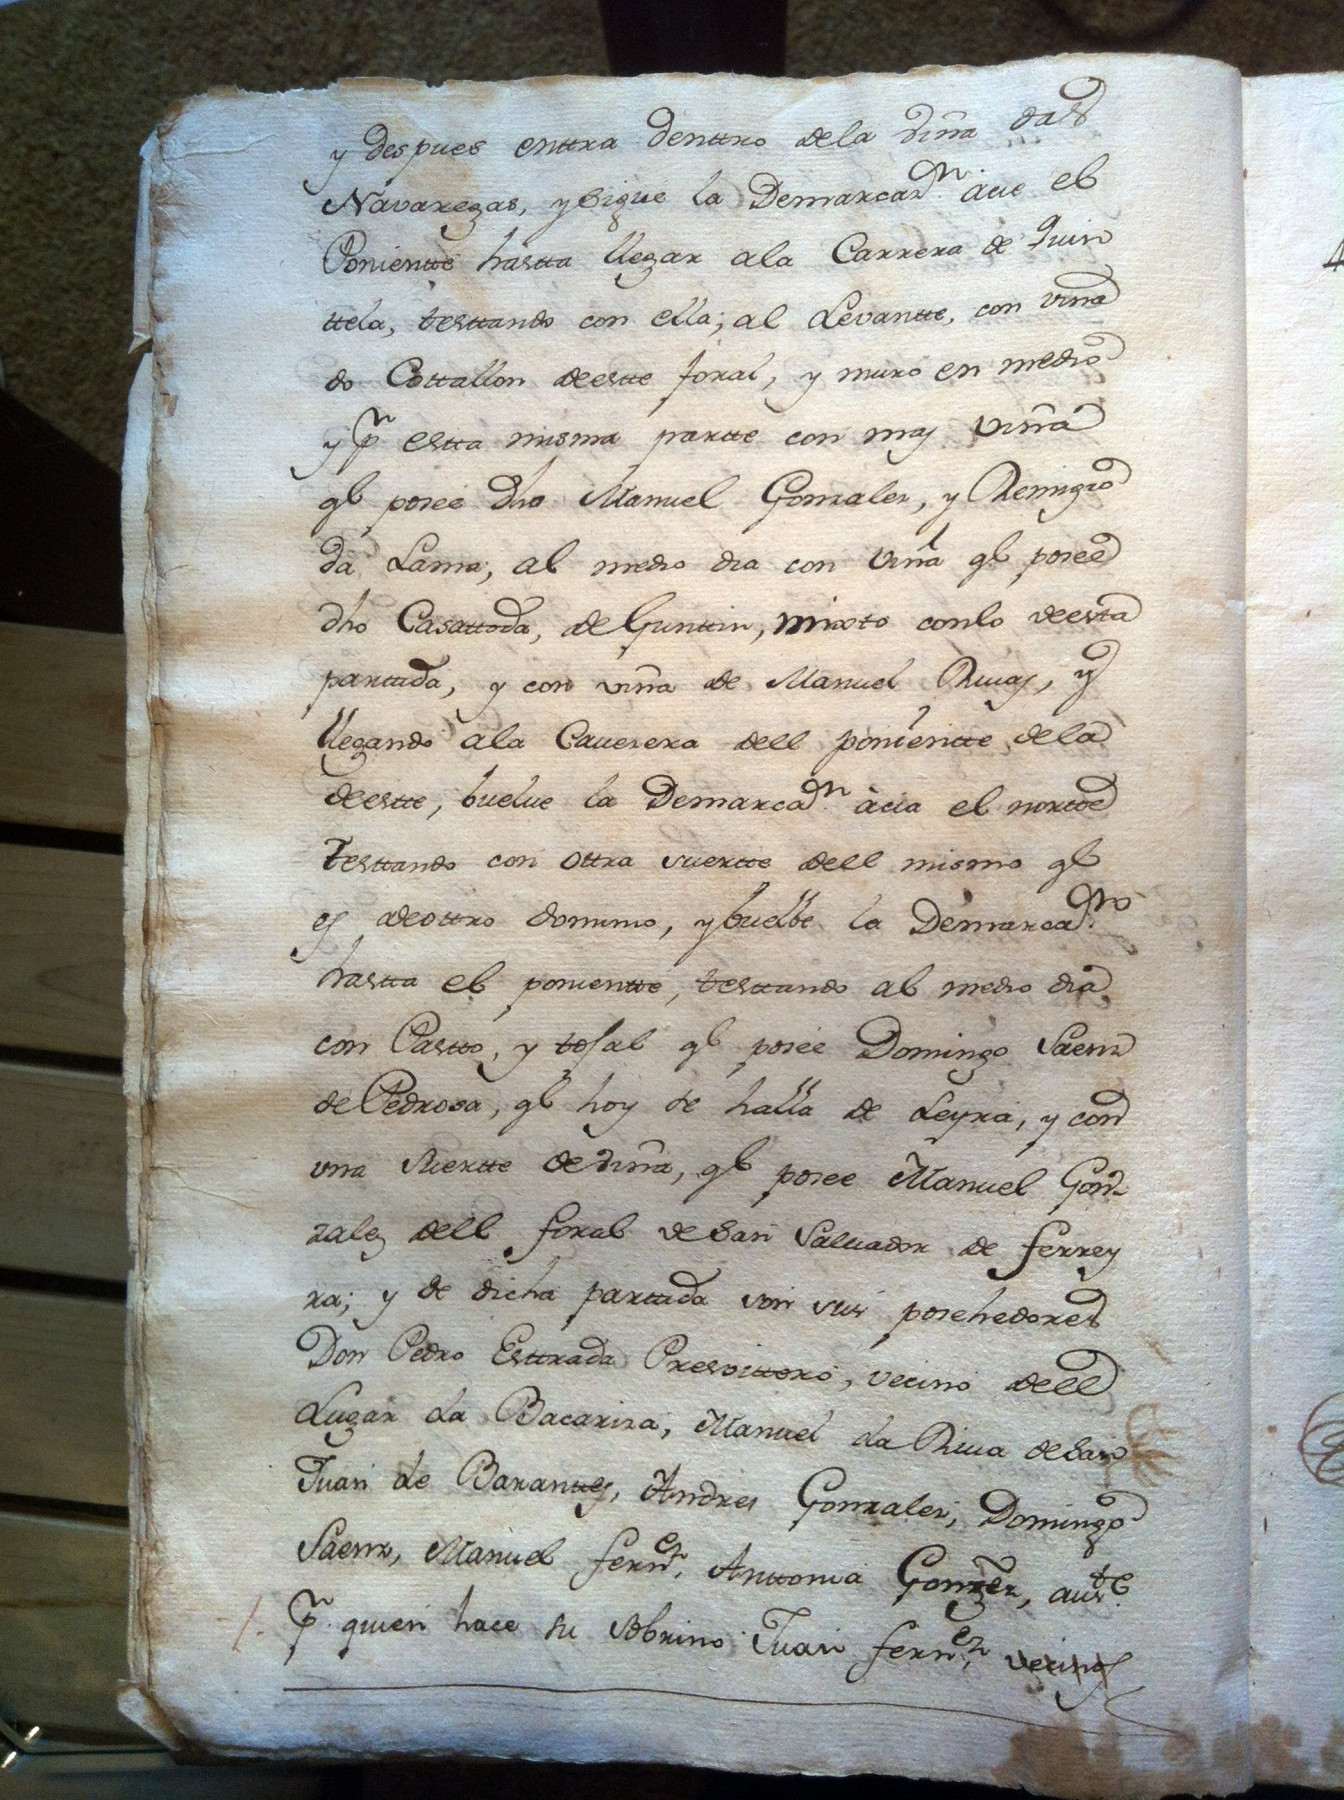 y despues enttra denttro dela viña das
Navaregas, y sigue la Demarcaon. àcie el
Poniente hastta llegar ala Carrera de Quin
ttela, testtando con ella; al Levantte, con viña
do Cottallon deestte foral, y muro en medio
y pr estta misma partte con mas viña
qe posee dho Manuel Gonzales, y Remigio
da Lama, al medio dia con viña qe posee
dho Casattoda, de Gunttin, mixto conlo deesta
parttida, y con viña de Manuel Rivas, y
llegando ala Cavesera dell ponientte, dela
deestte, buelve la Demarcaon. àcia el nortte
testtando con ottra suertte dell mismo qe
es deottro dominio, y buelbe la Demarcaon.
hastta el ponientte, testtando al medio dia
con Pastto, y tosal qe posee Domingo Saenz
de Pedrosa, qe hoy se halla de Leyra, y con
una suertte de viña, qe posee Manuel Gon-
zales dell foral de San Salvador de ferrey
ra; y de dicha parttida son sus posehedores
Don Pedro Esttrada Presvittero, vecino dell
Lugar da Bacariza, Manuel da Riva de San
Juan de Baranttes, Andres Gonzales, Domingo
Saenz, Manuel fernez. Anttonia Gonzez, ausste.
pr quien hace su sobrino Juan fernez, vecinos